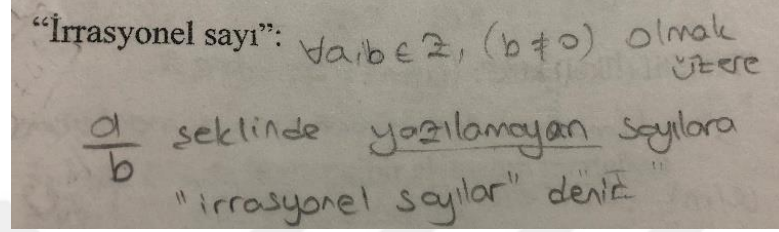 “İrrasyonel sayı”: ∀a,b ∈ Z, (b ≠ 0) olmak
üzere
a/b şeklinde yazılamayan sayılara
"irrasyonel sayılar" denir.